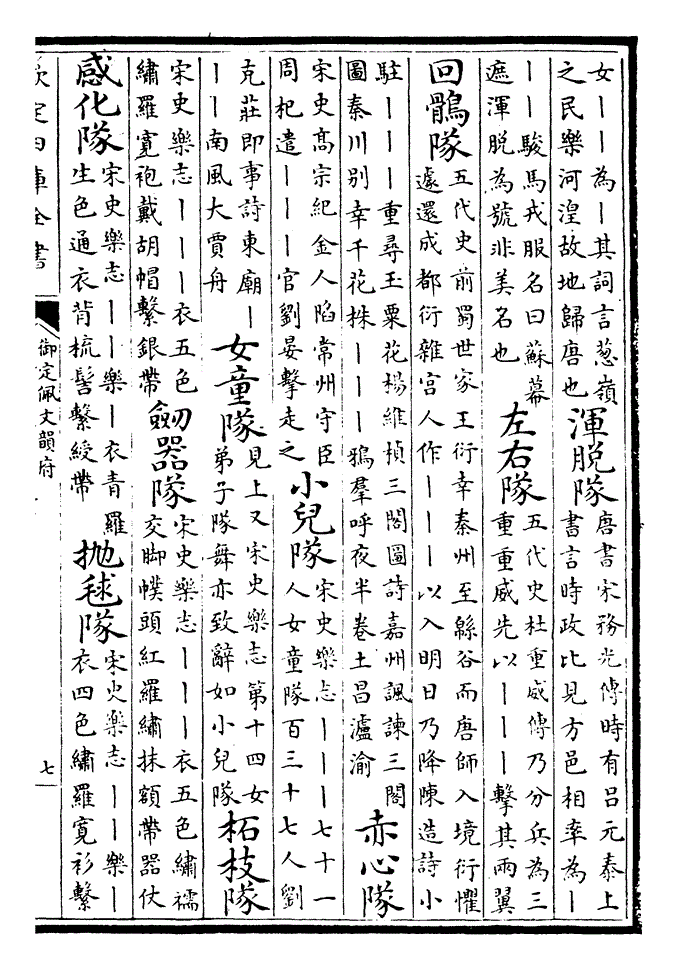 女——為—其詞言葱嶺
之民樂河湟故地歸唐也
渾脫隊
唐書宋務光傳時有呂元泰上
書言時政比見方邑相率為—
——駿馬戎服名曰蘇幕
遮渾脫為號非美名也
左右隊
五代史杜重威傳乃分兵為三
重重威先以———擊其兩翼
回鶻隊
五代史前蜀世家王衍幸秦州至緜谷而唐師入境衍懼
遽還成都衍雜宮人作———以入明日乃降陳造詩小
駐———重尋玉粟花楊維楨三閣圖詩嘉州諷諫三閣
圖秦川別幸千花株———鴉羣呼夜半卷土昌瀘渝
赤心隊
宋史高宗紀金人陷常州守臣
周杞遣———官劉晏擊走之
小兒隊
宋史樂志———七十一
人女童隊百三十七人劉
克莊即事詩東廟—
——南風大賈舟
女童隊
見上又宋史樂志第十四女
弟子隊舞亦致辭如小兒隊
柘枝隊
宋史樂志———衣五色
繡羅寛袍戴胡帽繫銀帶
劒器隊
宋史樂志———衣五色繡襦
交脚幞頭紅羅繡抹額帶器仗
感化隊
宋史樂志——樂—衣青羅
生色通衣背梳髻繫綬帶
抛毬隊
宋史樂志——樂—
衣四色繡羅寛衫繫
欽定四庫全書
御定佩文韻府
七